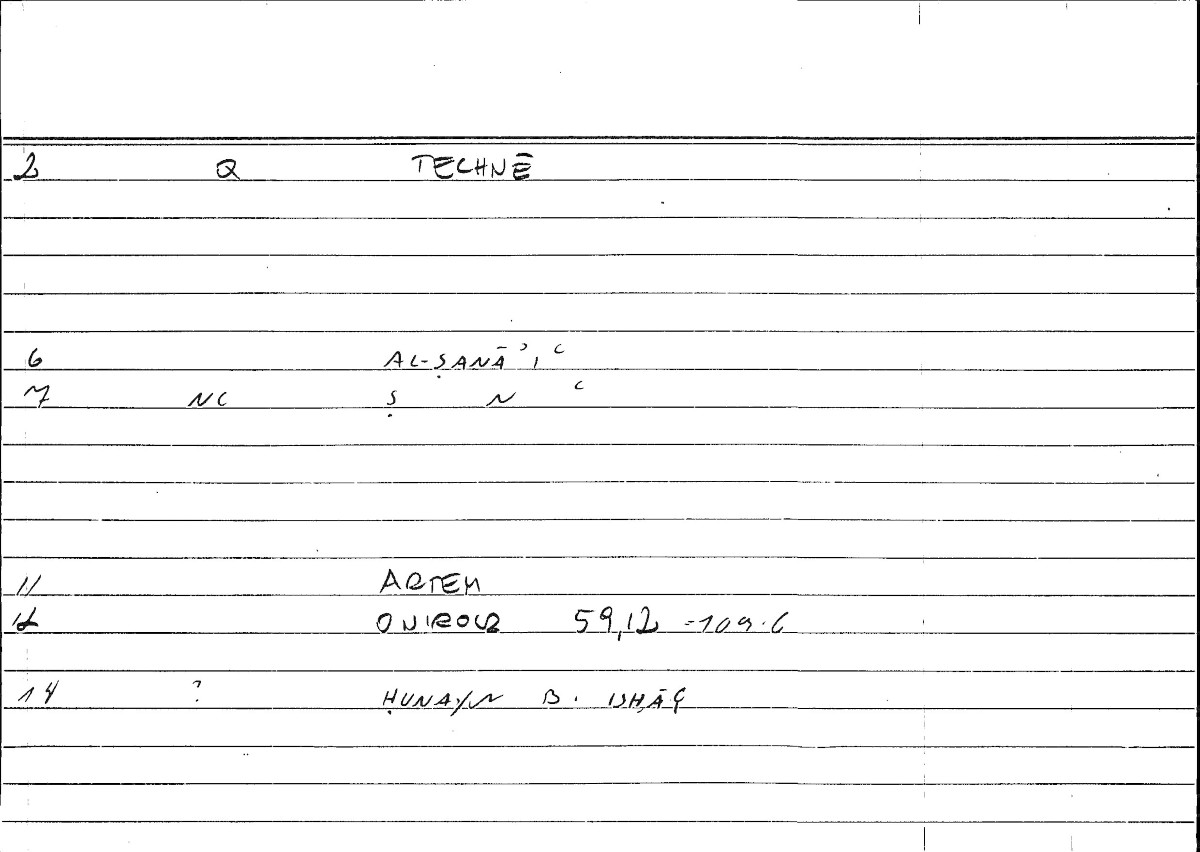 2 Q TECHNĒ
6 AL-ṢANĀʾIʿ
7 NC Ṣ N ʿ
11 ARTEM
12 ONIROCR 59,12 =109.6
14 ? ḤUNAYN B. ISḤĀQ